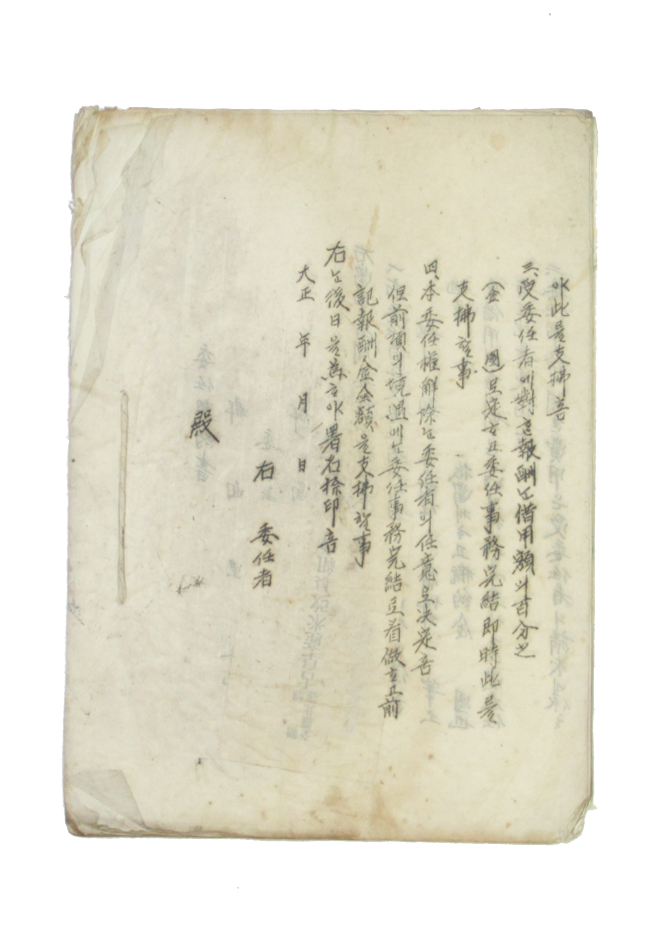 야此를支拂홈
三、受委任者에對한報酬는借用額의百分之
(金　　圓)로定하고委任事務完結即時此를
支拂할事
四、本委任權解除는委任者의任意로決定홈
但前項의境遇에는委任事務完結로看做하고前
記報酬金全額을支拂할事
右는後日을爲하야署名捺印홈
大正　年　月　日
右　委任者
殿